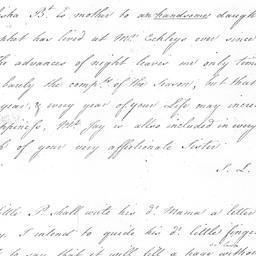 isha Bt. is mother to an handsome daugh
phet has lived at Mrs. Eckleys ever since
The advances of night leaves me only time
barely the compts. of the Season, but that
year, & every year of your Life may incre
ppiness, Mr. Jay is allso included in every
h of your very affectionate Sister
S. L.
little P. shall write his dr. Mama a letter
y. I intend to guide his dr. little finge
to say that it will fill a page withou